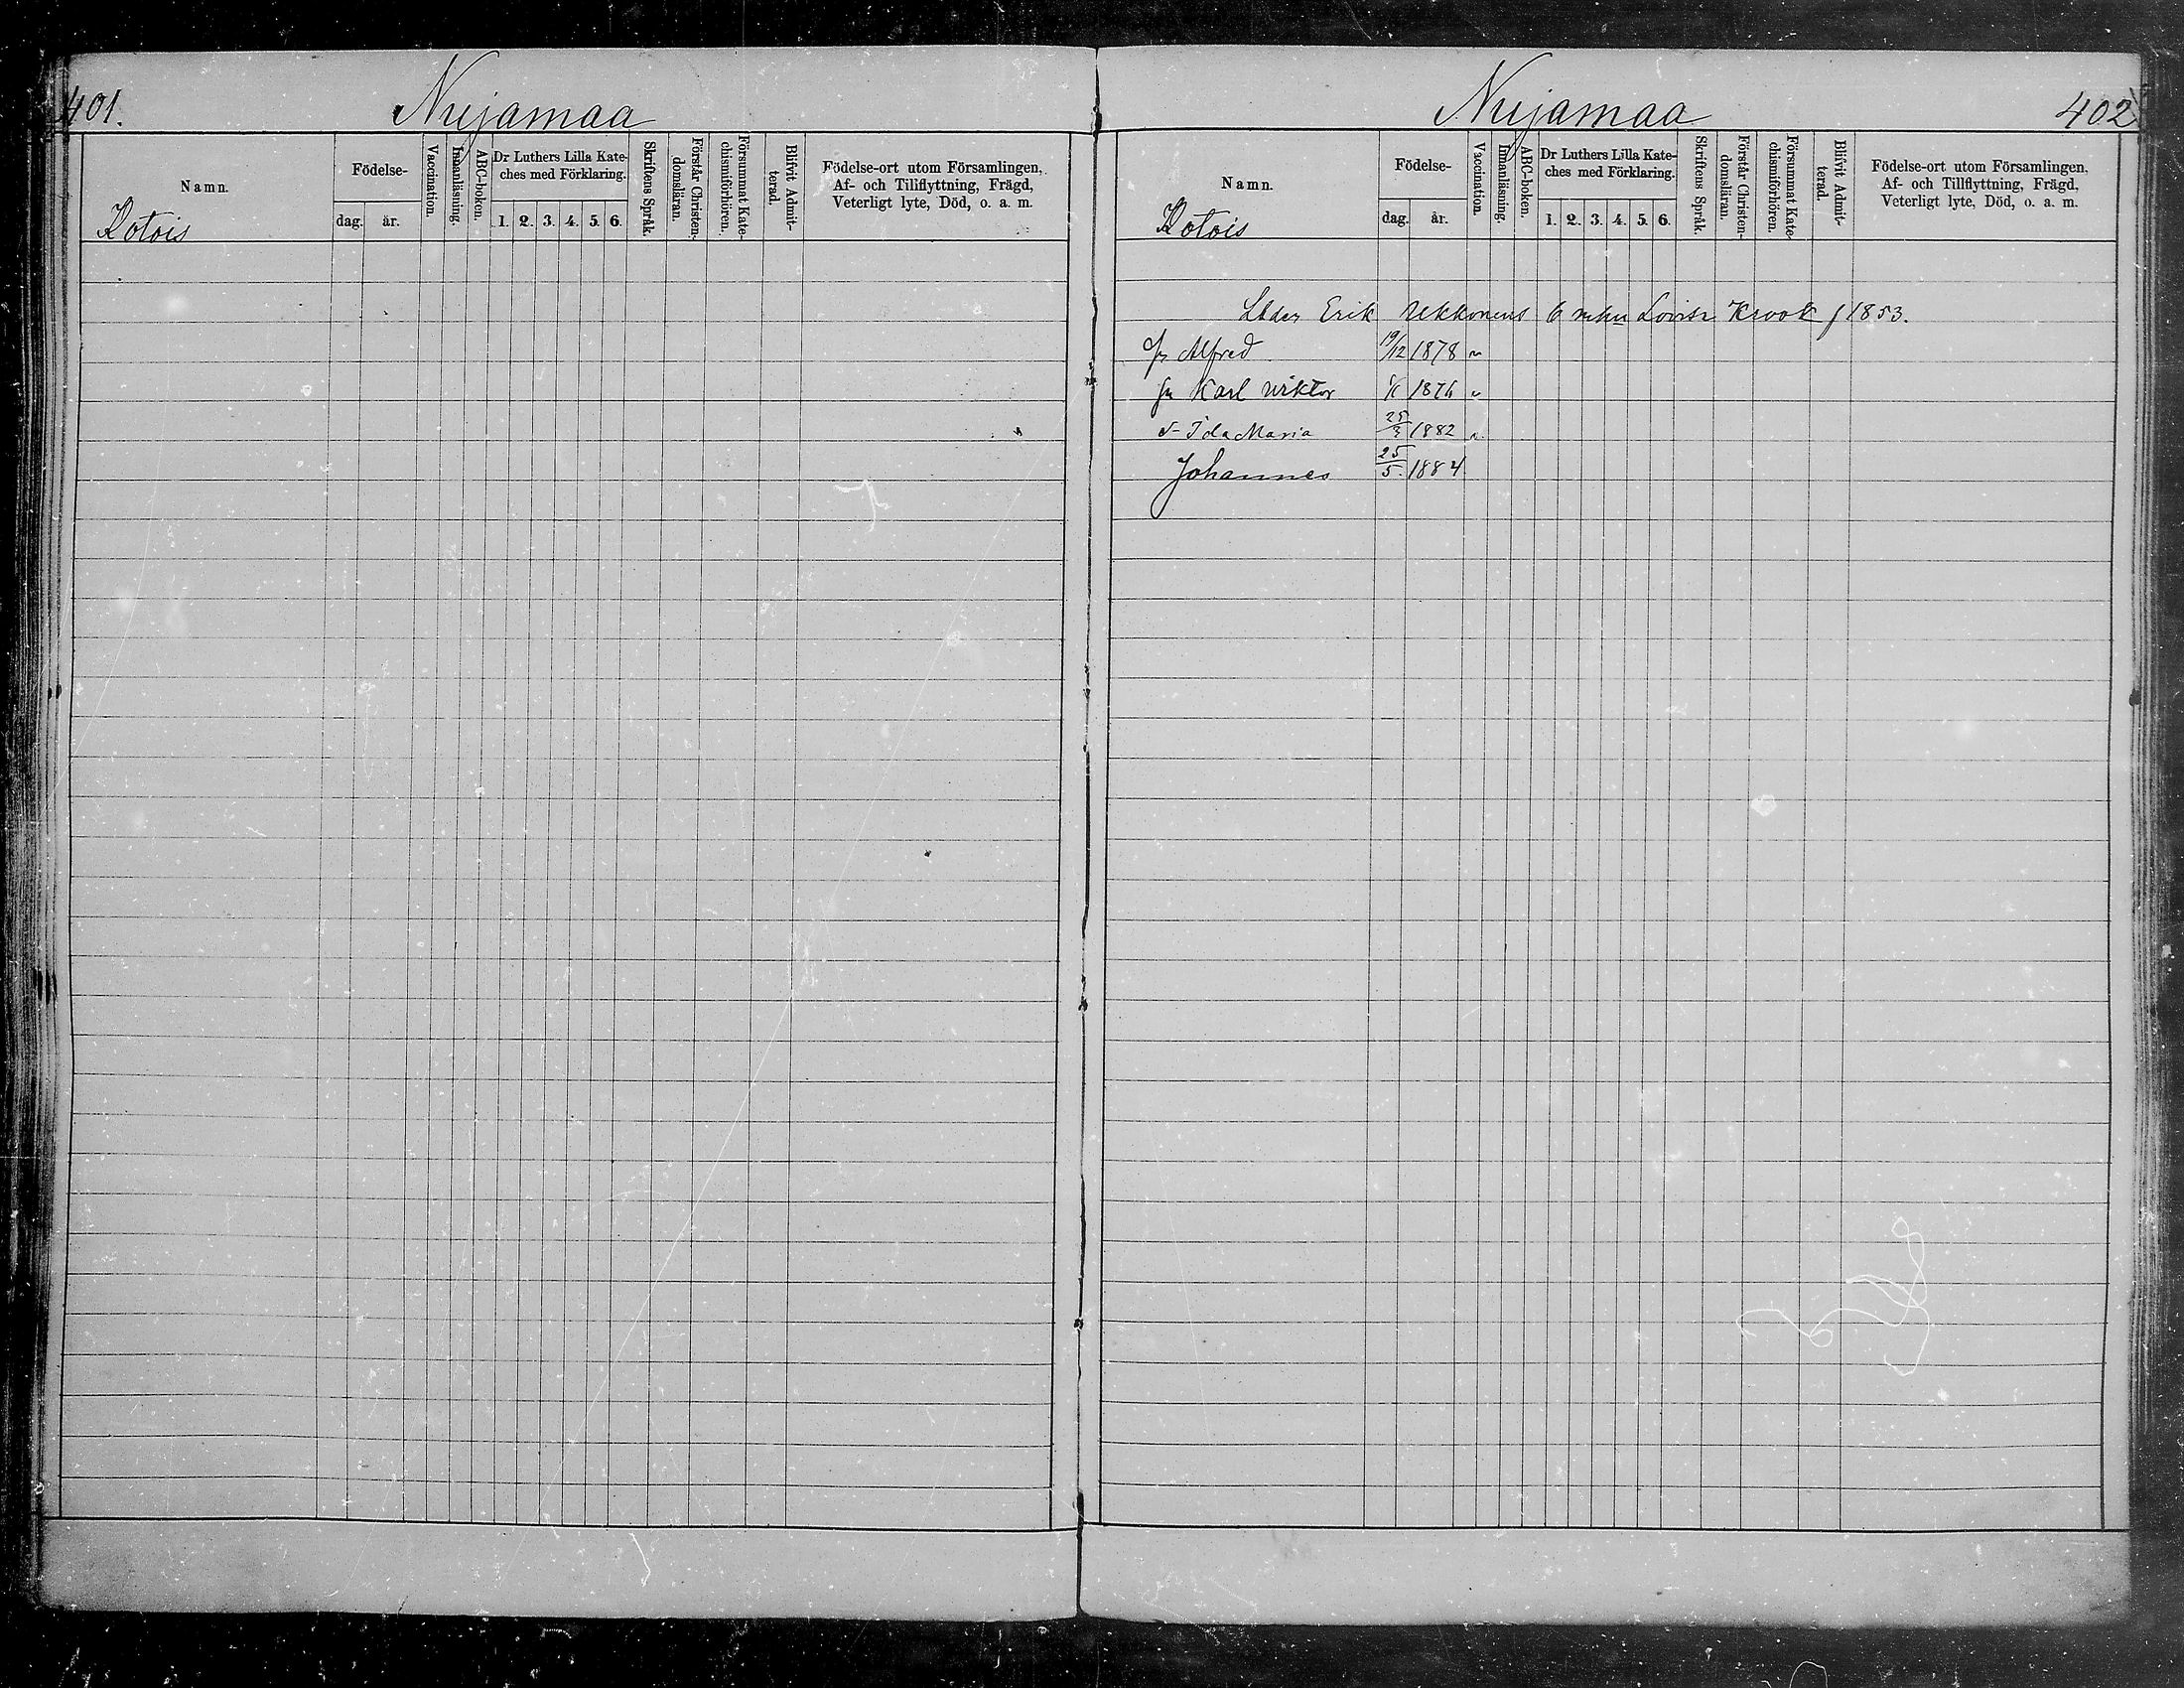 401. Nuijamaa
Namn. Födelse- Vaccination. Innanläsning. ABC-boken. Dr Luthers Lilla Kate-ches med Förklaring. Skriftens Språk. Förstår Christen-domsläran. Försummat Kate-chismiförhören. Blifvit Admit-terad. Födelse-ort utom Församlingen, Af- och Tillflyttning, Frägd, Veterligt lyte, Död, o. a. m.
dag. år. 1. 2. 3. 4. 5. 6.
Kotois
Nuijamaa 402
Namn. Födelse- Vaccination. Innanläsning. ABC-boken. Dr Luthers Lilla Kate-ches med Förklaring. Skriftens Språk. Förstår Christen-domsläran. Försummat Kate-chismiförhören. Blifvit Admit-terad. Födelse-ort utom Församlingen, Af- och Tillflyttning, Frägd, Veterligt lyte, Död, o. a. m.
dag. år. 1. 2. 3. 4. 5. 6.
Kotois
Erik Ukkonens Lovisa Krook f 1853.
Alfred 19/12 1878
Karl Viktor 1876
Ida Maria 25/3 1882
Johannes 25/5. 1884